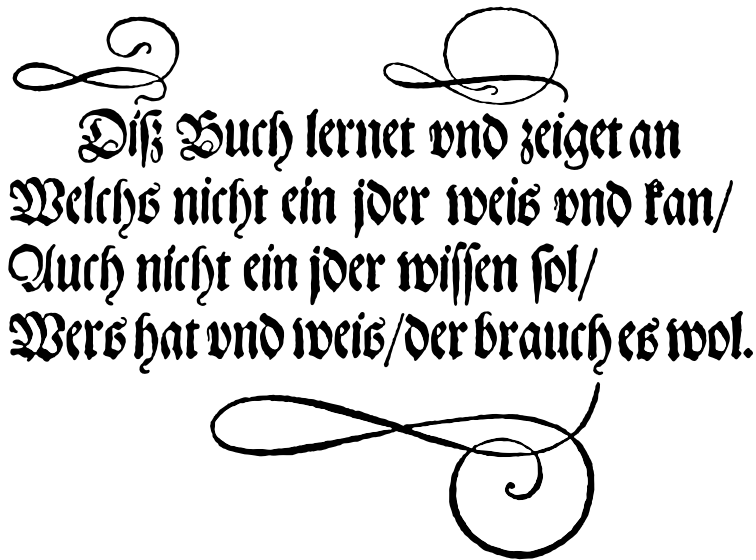 Diſz Buch lernet vnd zeiget an
Welchs nicht ein jder weis vnd kan/
Auch nicht ein jder wiſſen ſol/
Wers hat vnd weis/der brauch es wol.